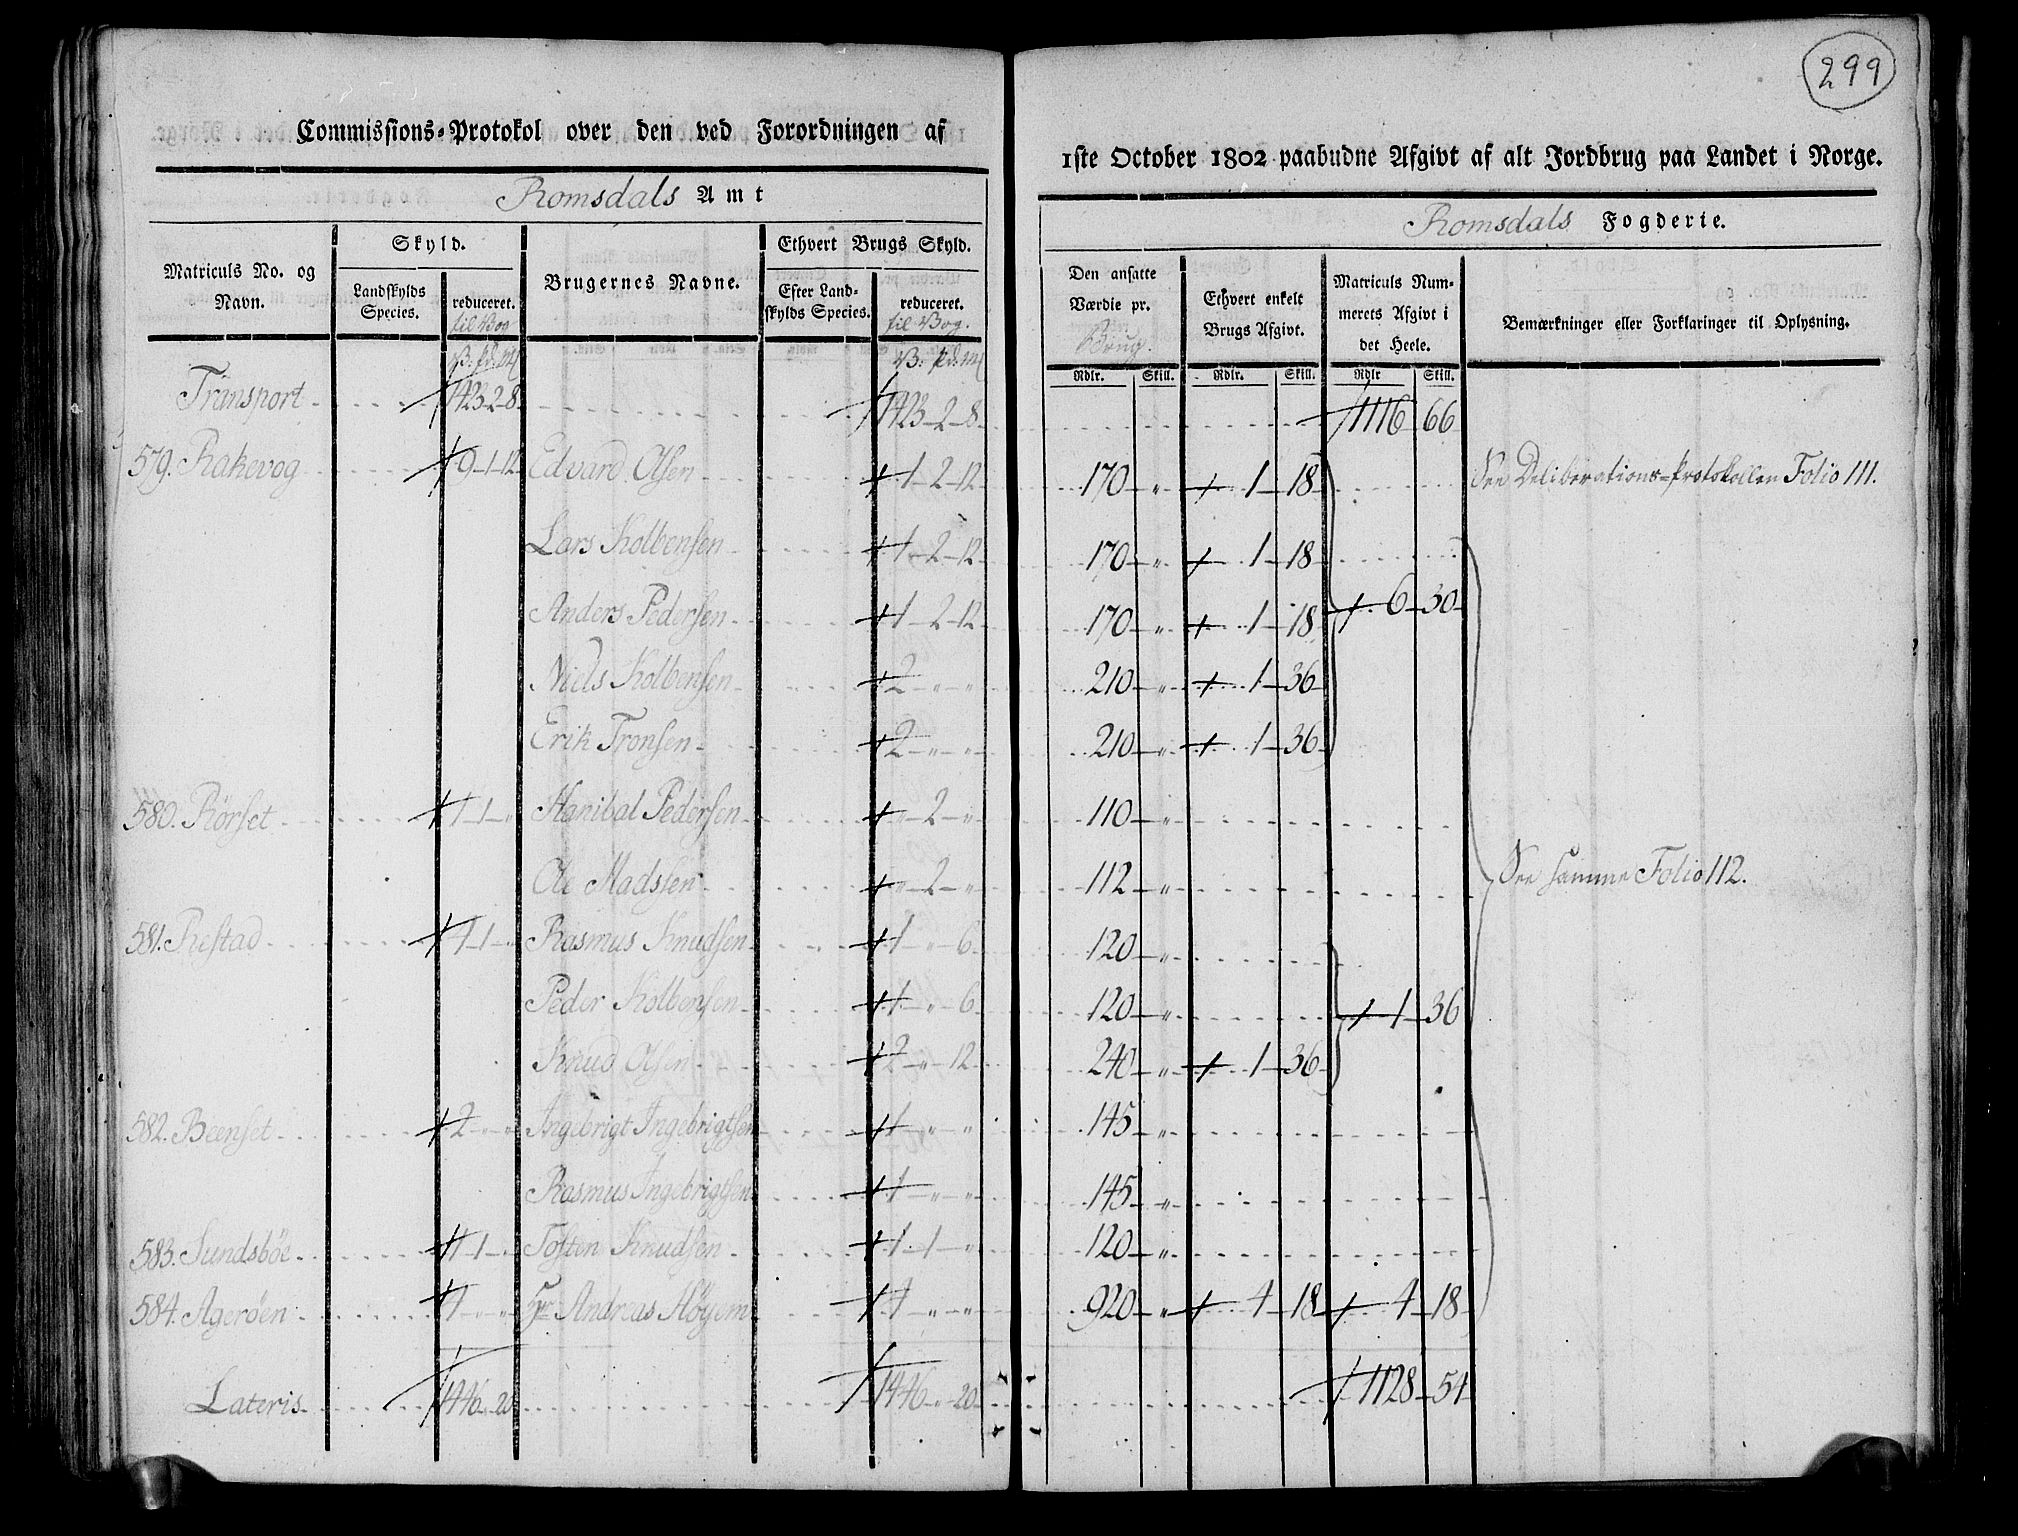 299
Commissions-Protokol over den ved Forordningen af
1ste October 1802 paabudne Afgivt af alt Jordbrug paa Landet i Norge.
Romsdals Amt
Romsdals Fogderie.
Matriculs No. og Navn.
Skyld.
Landskylds Species.
reduceret.
til Vog
Brugernes Navne.
Ethvert Brugs Skyld.
Efter Landskylds Species.
reduceret.
til Vog.
Den ansatte Værdie pr.
Brug.
Ethvert enkelt Brugs Afgivt.
Matriculs Nummerets Afgivt i det Heele.
Bemærkninger eller Forklaringer til Oplysning.
V: pd: m
V: pd: m
Rdlr. Skill. Rdlr. Skill. Rdlr Skill.
Transport 1423-2-8 1423-2-8 1116 66
579. Rakevog 9-1-12 Edvard Olsen 1-2-12 170 " 1-18 See Deliberations-Protokollen Folio 111.
Lars Kolbensen 1-2-12 170 " 1-18
Anders Pedersen 1-2-12 170 " 1-18 6-30
Niels Kolbensen 2-"-" 210 " 1-36
Erik Tronsen 2-"-" 210 " 1-36
580. Rörset 1-1-" Hanibal Pedersen "-2-" 110 "
Ole Madsen "-2-" 112 " See samme Folio 112.
581. Restad 1-1-" Rasmus Knudsen 1-"-6 120
Peder Kolbensen 1-"-6 120 " 1-36
Knud Olsen 2-"-12 240 " 1-36
582. Beenset 2-"-" Ingebrigt Ingebrigtsen 1-"-" 145 "
Rasmus Ingebrigtsen 1-"-" 145 "
583. Sundsböe 1-1- Tosten Knudsen 1-1-" 120 "
584. Ageröen 4-"-" Sr Andreas Höyem 4-"-" 920 " 4-18 4-18
Lateris 1446-"-20 1446-"-20 1128-54